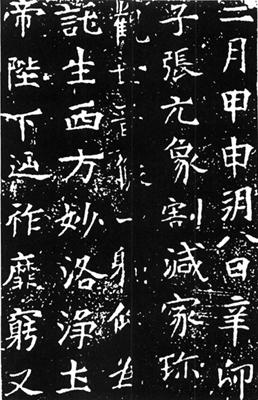 二月甲申朔八日辛卯
子張亢象割減家珎
觀世音像一軀仰為
託生西方妙洛淨土
帝陛下延祚靡窮又